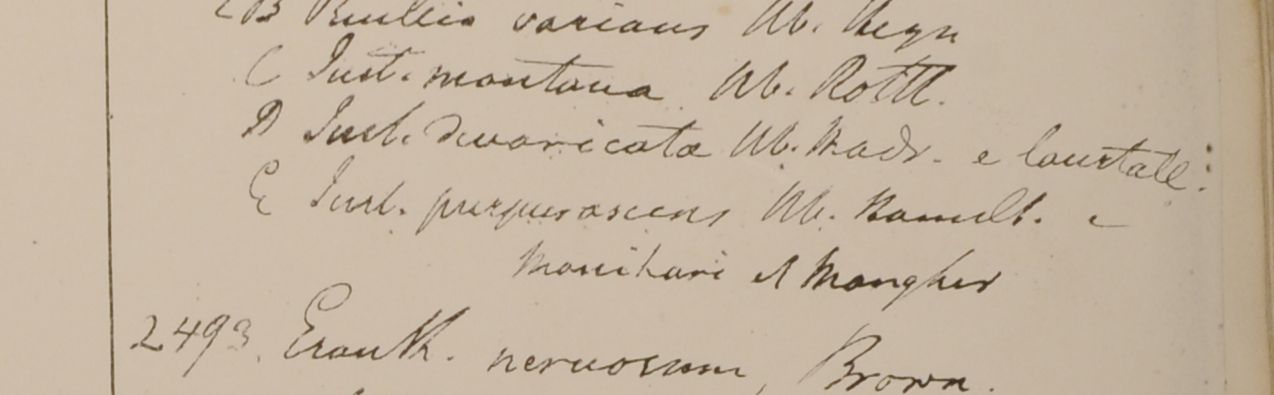 B Ruellia varians Hb. Heyn
C Just. montana Hb. Rottl.
D Just. divaricata Hb. Madr. e Courtall.
E Just. purpurascens Hb. Hamilt. e
Monihari et Mongher
2493. Eranth. nervosum, Brown.